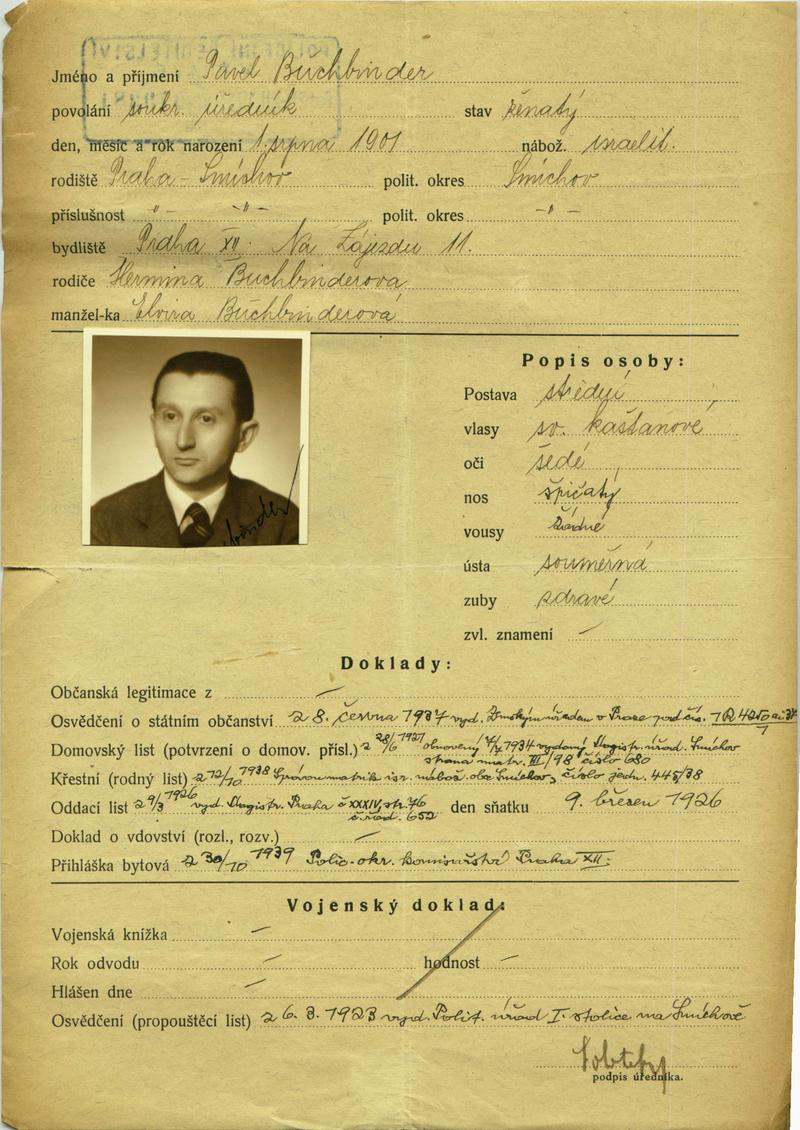 Jméno a příjmení Pavel Buchbinder
povolání soukr. úředník stav ženatý
den, měsíc a rok narození 1. srpna 1901 nábož. israelit.
rodiště Praha - Smíchov polit. okres Smíchov
příslušnost -"- -"- polit. okres -"-
bydliště Praha XII. Na Zájezdu 11.
rodiče Hermina Buchbinderová
manžel-ka Elvira Buchbinderová
Popis osoby:
Postava střední
vlasy sv. kaštanové
oči šedé
nos špičatý
vousy žádné
ústa souměrná
zuby zdravé
zvl. znamení —
Doklady:
Občanská legitimace z —
Osvědčení o státním občanství z 8. června 1937 vyd. Zemským úřadem v Praze pod čís.
Domovský list (potvrzení o domov. přísl.) z 28/6 1927 obnovený 1934 vydaný Magistr. úřad. Smíchov
strana matr. III/98 číslo 680
Křestní (rodný list) z 12/10 1938 Správou matrik isr. nábož. obce Smíchov, číslo jedn. 445/38
Oddací list z 9/3 1926 vyd. Magistr. Praha č. XXXIV, str. 76 den sňatku 9. březen 1926
č. řad. 652
Doklad o vdovství (rozl., rozv.) —
Přihláška bytová z 30/10 1939 Polic. okr. komisařství Praha XII.
Vojenský doklad:
Vojenská knížka —
Rok odvodu — hodnost —
Hlášen dne —
Osvědčení (propouštěcí list) z 6. 3. 1923 vyd. Polit. úřad I. stolice na Smíchově
podpis úředníka.